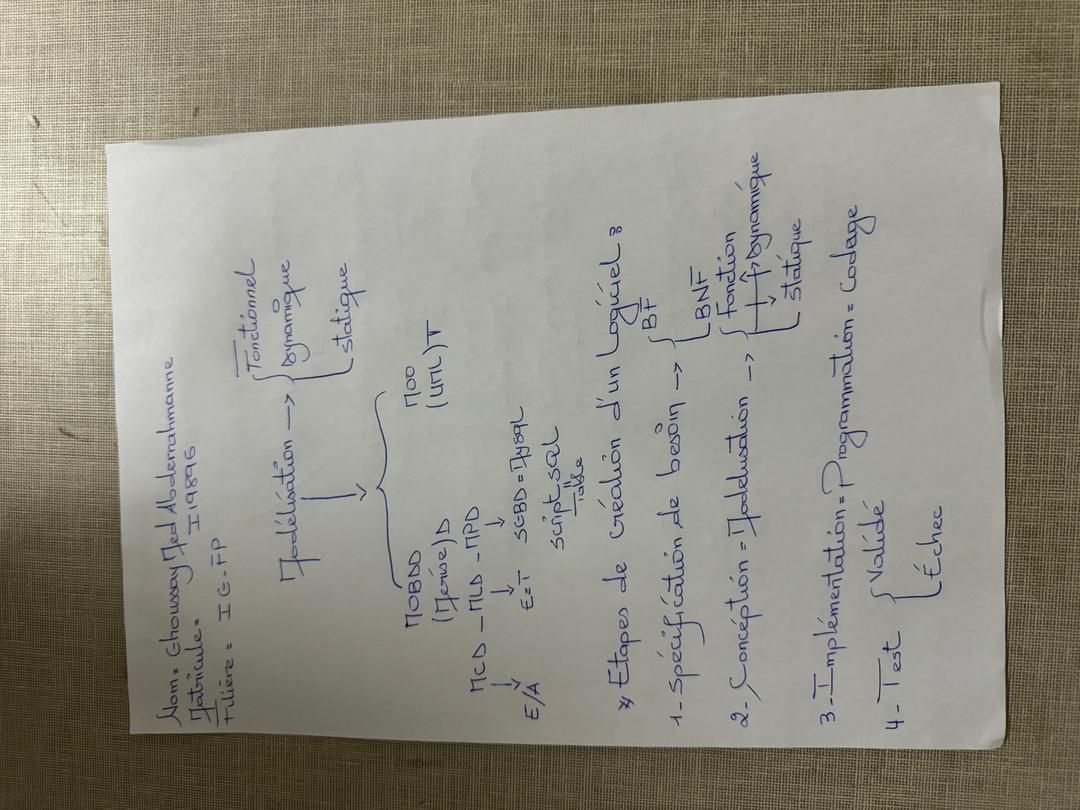 Nom = Ghoussay Med Abderrahmanne
Matricule = I19896
Filière = IG-FP
Modélisation → { Fonctionnel
Dynamique
statique
MOBDD
(Merise) D
MOO
(UML) T
MCD - MLD - MPD
E/A
E=T
SGBD = MySQL
script sql
Table
* Etapes de création d'un Logiciel :
1 - Spécification de besoin → { BF
BNF
2 - Conception = Modélisation → { Fonction
→ Dynamique
statique
3 - Implémentation = Programmation = Codage
4 - Test { Validé
Échec